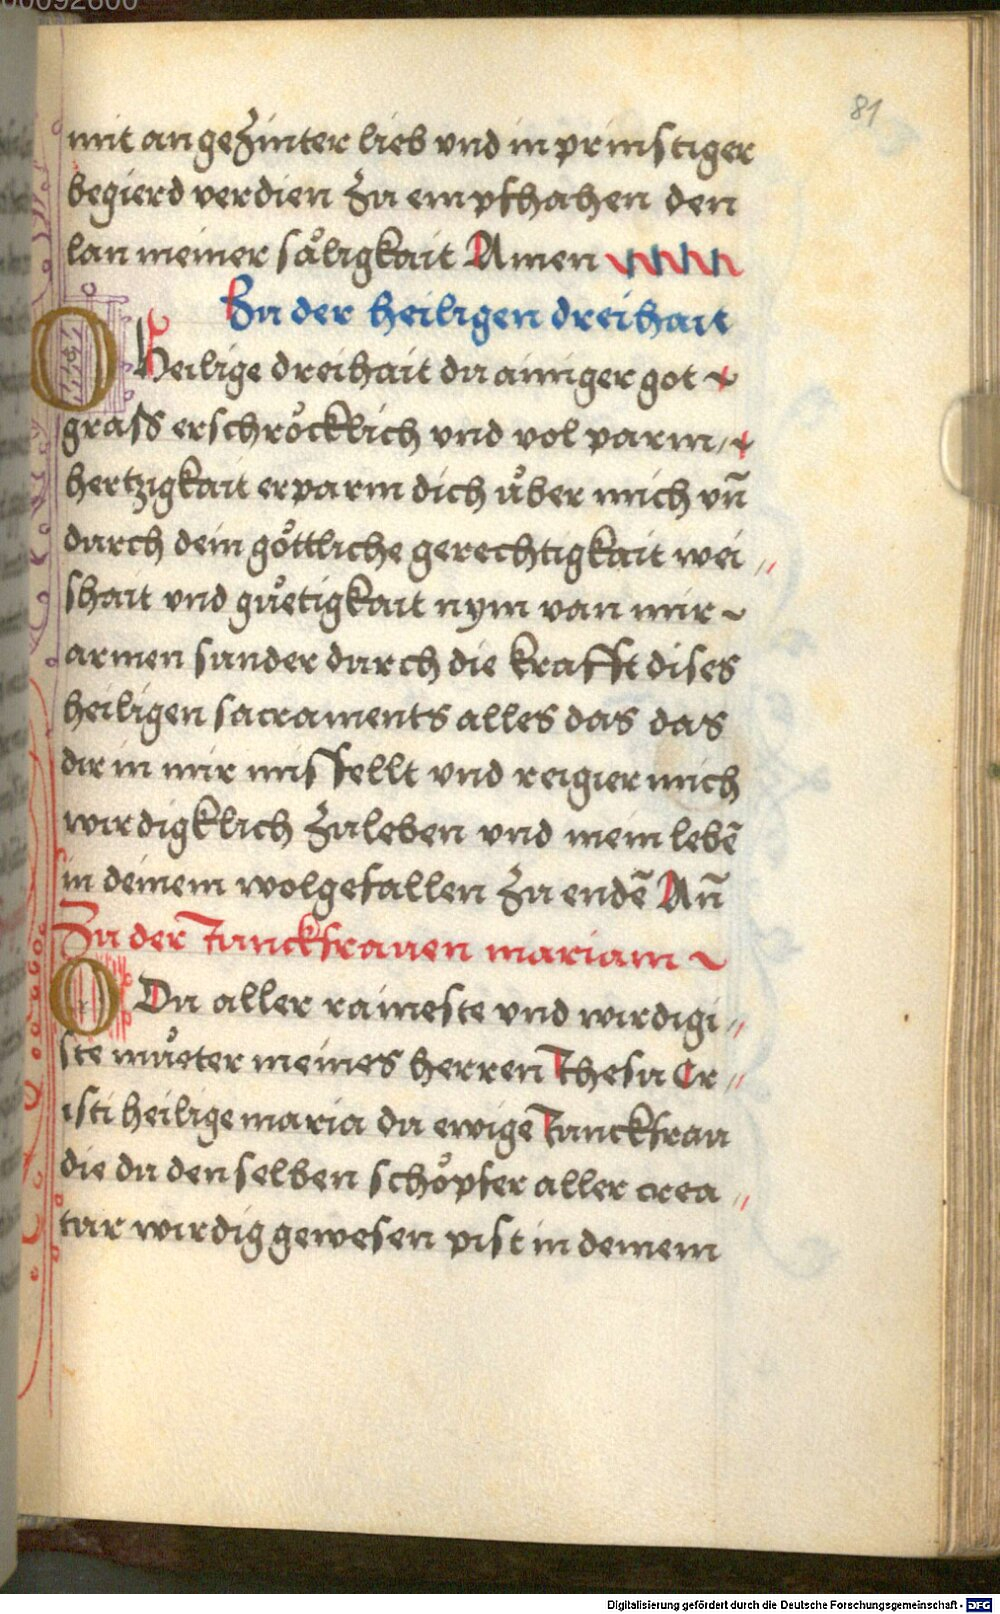 00092600
81
mit angezunter lieb vnd inprinstiger
begierd verdien Zu empfhahen den
lan meiner såligkait Amen
Zu der heiligen dreihait
O Heilige dreihait du ainiger got
grass erschröcklich vnd vol parm
hertzigkait erparm dich über mich vn̄
durch dein göttliche gerechtigkait wei〃
shait vnd guetigkait nym van mir
armen sunder durch die krafft dises
heiligen sacraments alles das das
dir in mir misfellt vnd reigier mich
wirdigklich Zuleben vnd mein lebē
in deinem wolgefallen Zu endē Am̄
Zu der Junckfrauen mariam
O Du aller raineste vnd wirdigi〃
ste mueter meines herren Jhesu Cr〃
isti heilige maria du ewige Junckfrau
die du den selben schöpfer aller crea〃
tur wirdig gewesen pist in deinem
Digitalisierung gefördert durch die Deutsche Forschungsgemeinschaft - DFG